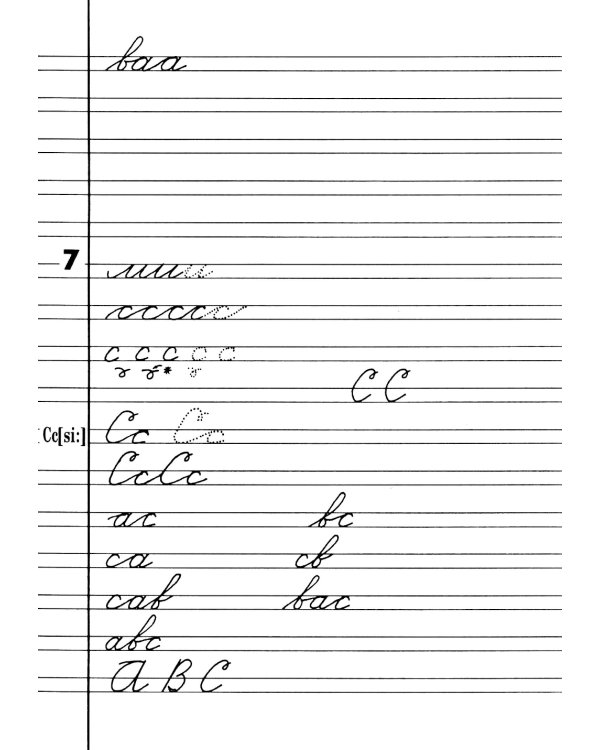 baa
7
ccccc
c c c c c
C C
Cc[si:] Cc Cc
CcCc
ac bc
ca cb
cab bac
abc
A B C